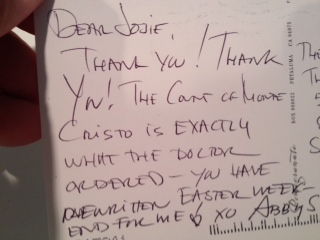 DEAR JOSIE,
THANK YOU! THANK
YOU! THE COUNT OF MONTE
CRISTO IS EXACTLY
WHAT THE DOCTOR
ORDERED - YOU HAVE
WRITTEN EASTER WEEK-
END FOR ME ♡ XO ABBY
PETALUMA CA